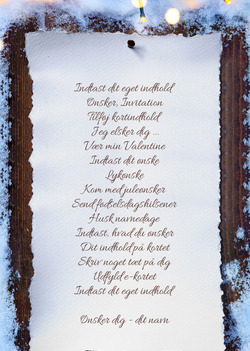 Indtast dit eget indhold
Ønsker, Invitation
Tilføj kortindhold
Jeg elsker dig ...
Vær min Valentine
Indtast dit ønske
Lykønske
Kom med juleønsker
Send fødselsdagshilsener
Husk navnedage
Indtast, hvad du ønsker
Dit indhold på kortet
Skriv noget tæt på dig
Udfyld e-kortet
Indtast dit eget indhold
Ønsker dig - dit navn